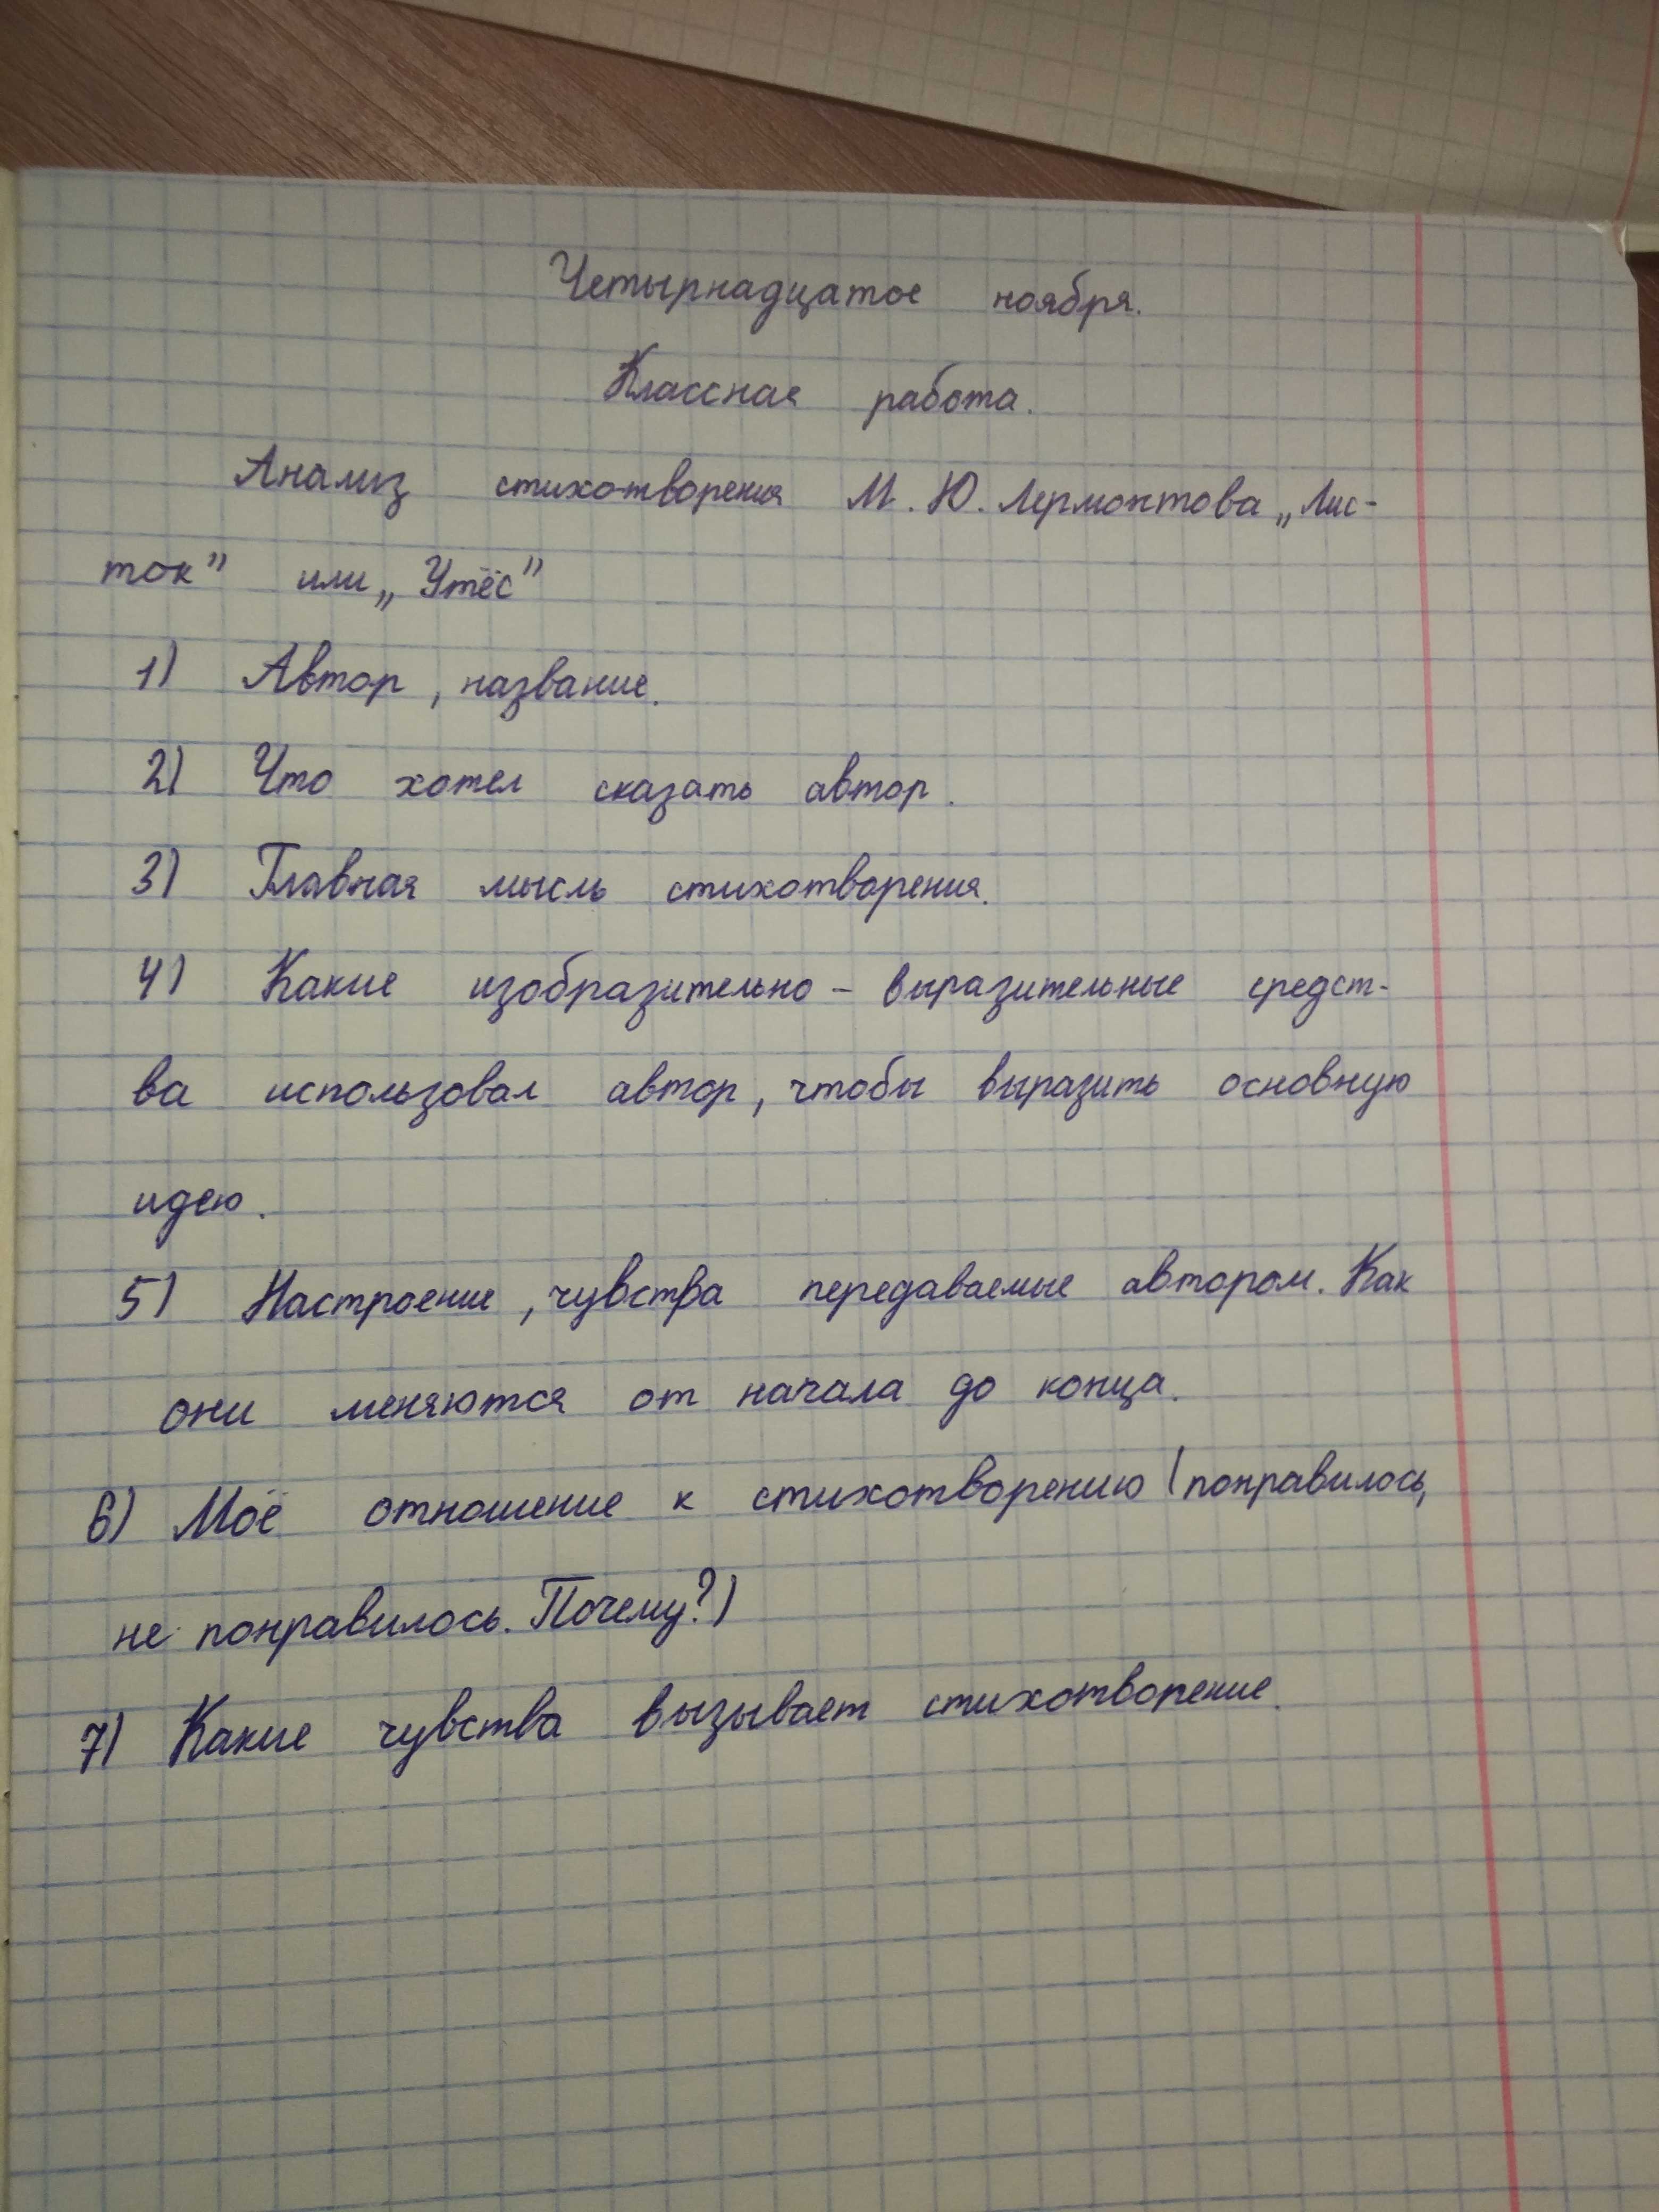 Четырнадцатое ноября.
Классная работа.
Анализ стихотворения М. Ю. Лермонтова „Лис-
ток” или „Утёс”
1) Автор, название.
2) Что хотел сказать автор.
3) Главная мысль стихотворения.
4) Какие изобразительно - выразительные средст-
ва использовал автор, чтобы выразить основную
идею.
5) Настроение, чувства передаваемые автором. Как
они меняются от начала до конца.
6) Моё отношение к стихотворению (понравилось,
не понравилось. Почему?)
7) Какие чувства вызывает стихотворение.